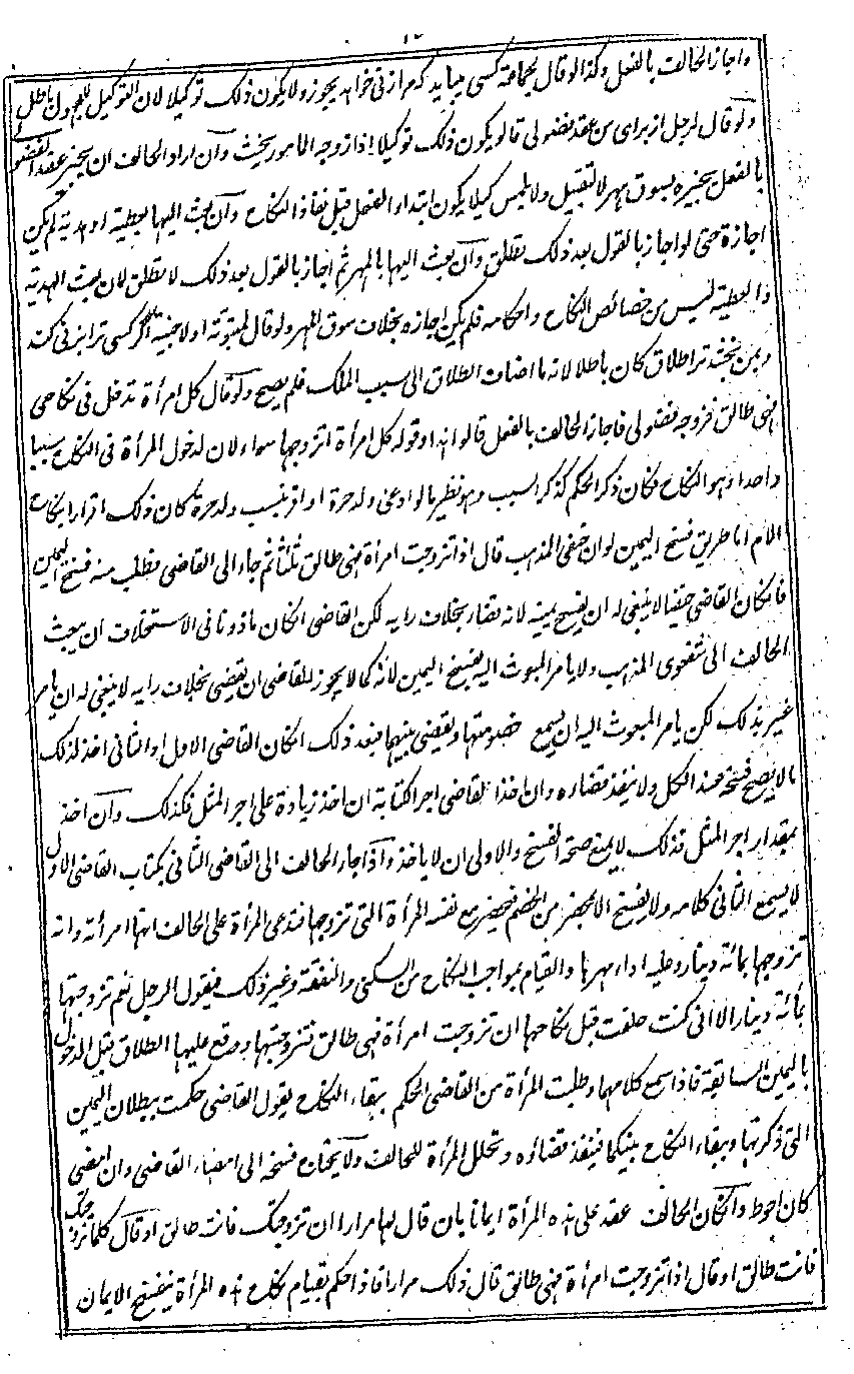 واجاز الحالف بالفعل وكذا لو قال بجماعة كسى ميبايد كه مرا زنى خواهد يجوز ولا يكون ذلك توكيلا لان التوكيل للمجهول باطل
ولو قال لرجل از براى من عقد فضولى قالو يكون ذلك توكيلا اذا زوجه المامور يحنث وان اراد الحالف ان يجيز عقد الفضولى
بالفعل يجيزه بسوق مهر لا تقبيل ولا بلمس كيلا يكون ابتداء الفعل قبل نفاذ النكاح وان بعث اليها بعطية او هدية لم يكن
اجازة حتى لو اجاز بالقول بعد ذلك تطلق وان بعث اليها بالمهر ثم اجاز بالقول بعد ذلك لا تطلق لان بعث الهدية
والعطية ليس من خصائص النكاح واحكامه فلم يكن اجازه بخلاف سوق المهر ولو قال لمبتوتة او لاجنبية اگر كسى ترا بزنى كند
وبمن بخشد ترا طلاق كان باطلا لانه ما اضاف الطلاق الى سبب الملك فلم يصح ولو قال كل امرأة تدخل فى نكاحى
فهى طالق فزوجه فضولى فاجاز الحالف بالفعل قالوا هذا وقوله كل امرأة اتزوجها سواء لان لدخول المرأة فى النكاح سببا
واحدا وهو النكاح فكان ذكر الحكم كذكر السبب وهو نظير ما لو ادعى ولد حرة او اقر بنسب ولد حرة كان ذلك اقرارا بنكاح
الام اما طريق فسخ اليمين لو ان حنفى المذهب قال اذا تزوجت امرأة فهى طالق ثلثا ثم جاء الى القاضى فطلب منه فسخ اليمين
فان كان القاضى حنفيا لا ينبغى له ان يفسخ يمينه لانه قضاء بخلاف رايه لكن القاضى ان كان ماذونا فى الاستخلاف ان يبعث
الحالف الى شفعوى المذهب ولا يامر المبعوث اليه بفسخ اليمين لانه كما لا يجوز للقاضى ان يقضى بخلاف رايه لا ينبغى له ان يامر
غيره بذلك لكن يامر المبعوث اليه ان يسمع خصومتها ويقضى بينهما فبعد ذلك ان كان القاضى الاول او الثانى اخذ لذلك
مالا يصح فسخه عند الكل ولا ينفذ قضاءه وان اخذ القاضى اجر الكتابة ان اخذ زيادة على اجر المثل فكذلك وان اخذ
بمقدار اجر المثل فذلك لا يمنع صحة الفسخ والاولى ان لا ياخذ واذا جاء الحالف الى القاضى الثانى بكتاب القاضى الاول
لا يسمع الثانى كلامه ولا يفسخ الا بمحضر من الخصم فيحضر مع نفسه المرأة التى تزوجها فتدعى المرأة على الحالف انها امرأته وانه
تزوجها بمائة دينار وعليه اداء مهرها والقيام بمواجب النكاح من السكنى والنفقة وغير ذلك فيقول الرجل نعم تزوجتها
بمائة دينار الا انى كنت حلفت قبل نكاحها ان تزوجت امرأة فهى طالق فتزوجتها ووقع عليها الطلاق قبل الدخول
باليمين السابقة فاذا سمع كلامها وطلبت المرأة من القاضى الحكم ببقاء النكاح يقول القاضى حكمت ببطلان اليمين
التى ذكرتها وببقاء النكاح بينكما فينفذ قضاؤه وتحلل المرأة للحالف ولا يحتاج فسخه الى امضاء القاضى وان امضى
كان احوط وان كان الحالف عقد على هذه المرأة ايمانا بان قال لها مرارا ان تزوجتك فانت طالق او قال كلما تزوجتك
فانت طالق او قال اذا تزوجت امرأة فهى طالق قال ذلك مرارا فاذا حكم بقيام نكاح هذه المرأة ينفسخ الايمان